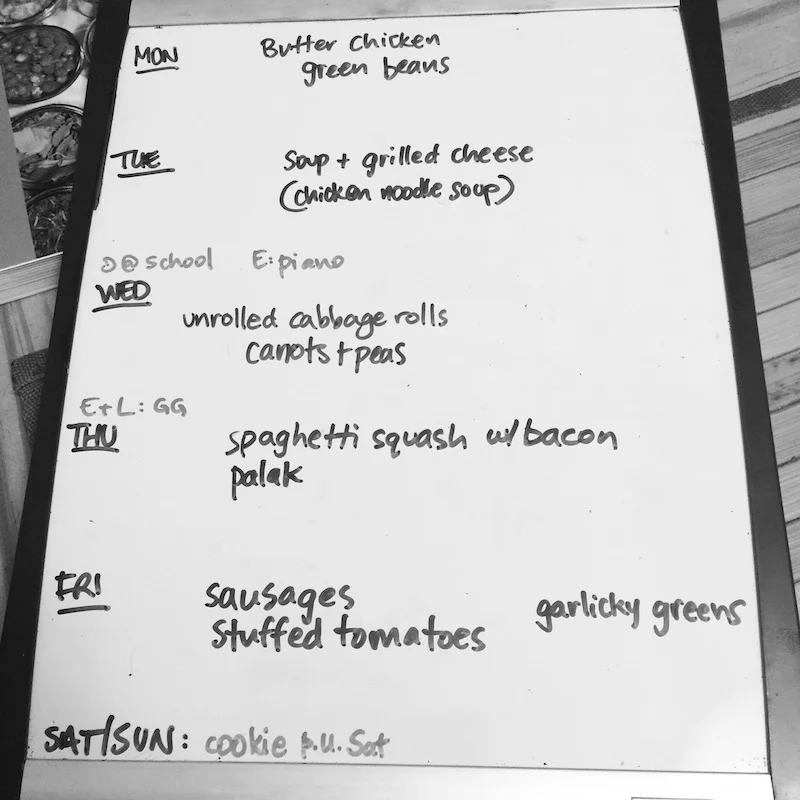 MON Butter Chicken
green beans
TUE Soup + grilled cheese
(chicken noodle soup)
J@school E: piano
WED
unrolled cabbage rolls
carrots + peas
E+L: GG
THU spaghetti squash w/ bacon
palak
FRI sausages garlicky greens
stuffed tomatoes
SAT/SUN: cookie p.u. Sat